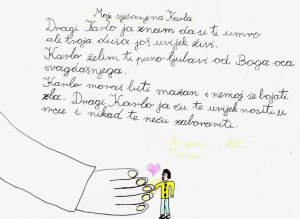 Moje sjećanje na Karla
Dragi Karlo ja znam da si ti umro
ali tvoja duša još uvijek živi.
Karlo želim ti puno ljubavi od Boga oca
svagdašnjega.
Karlo moraš biti snažan i nemoj se bojati
zla. Dragi Karlo ja ću te uvijek nositi u
srce i nikad te neću zaboraviti.